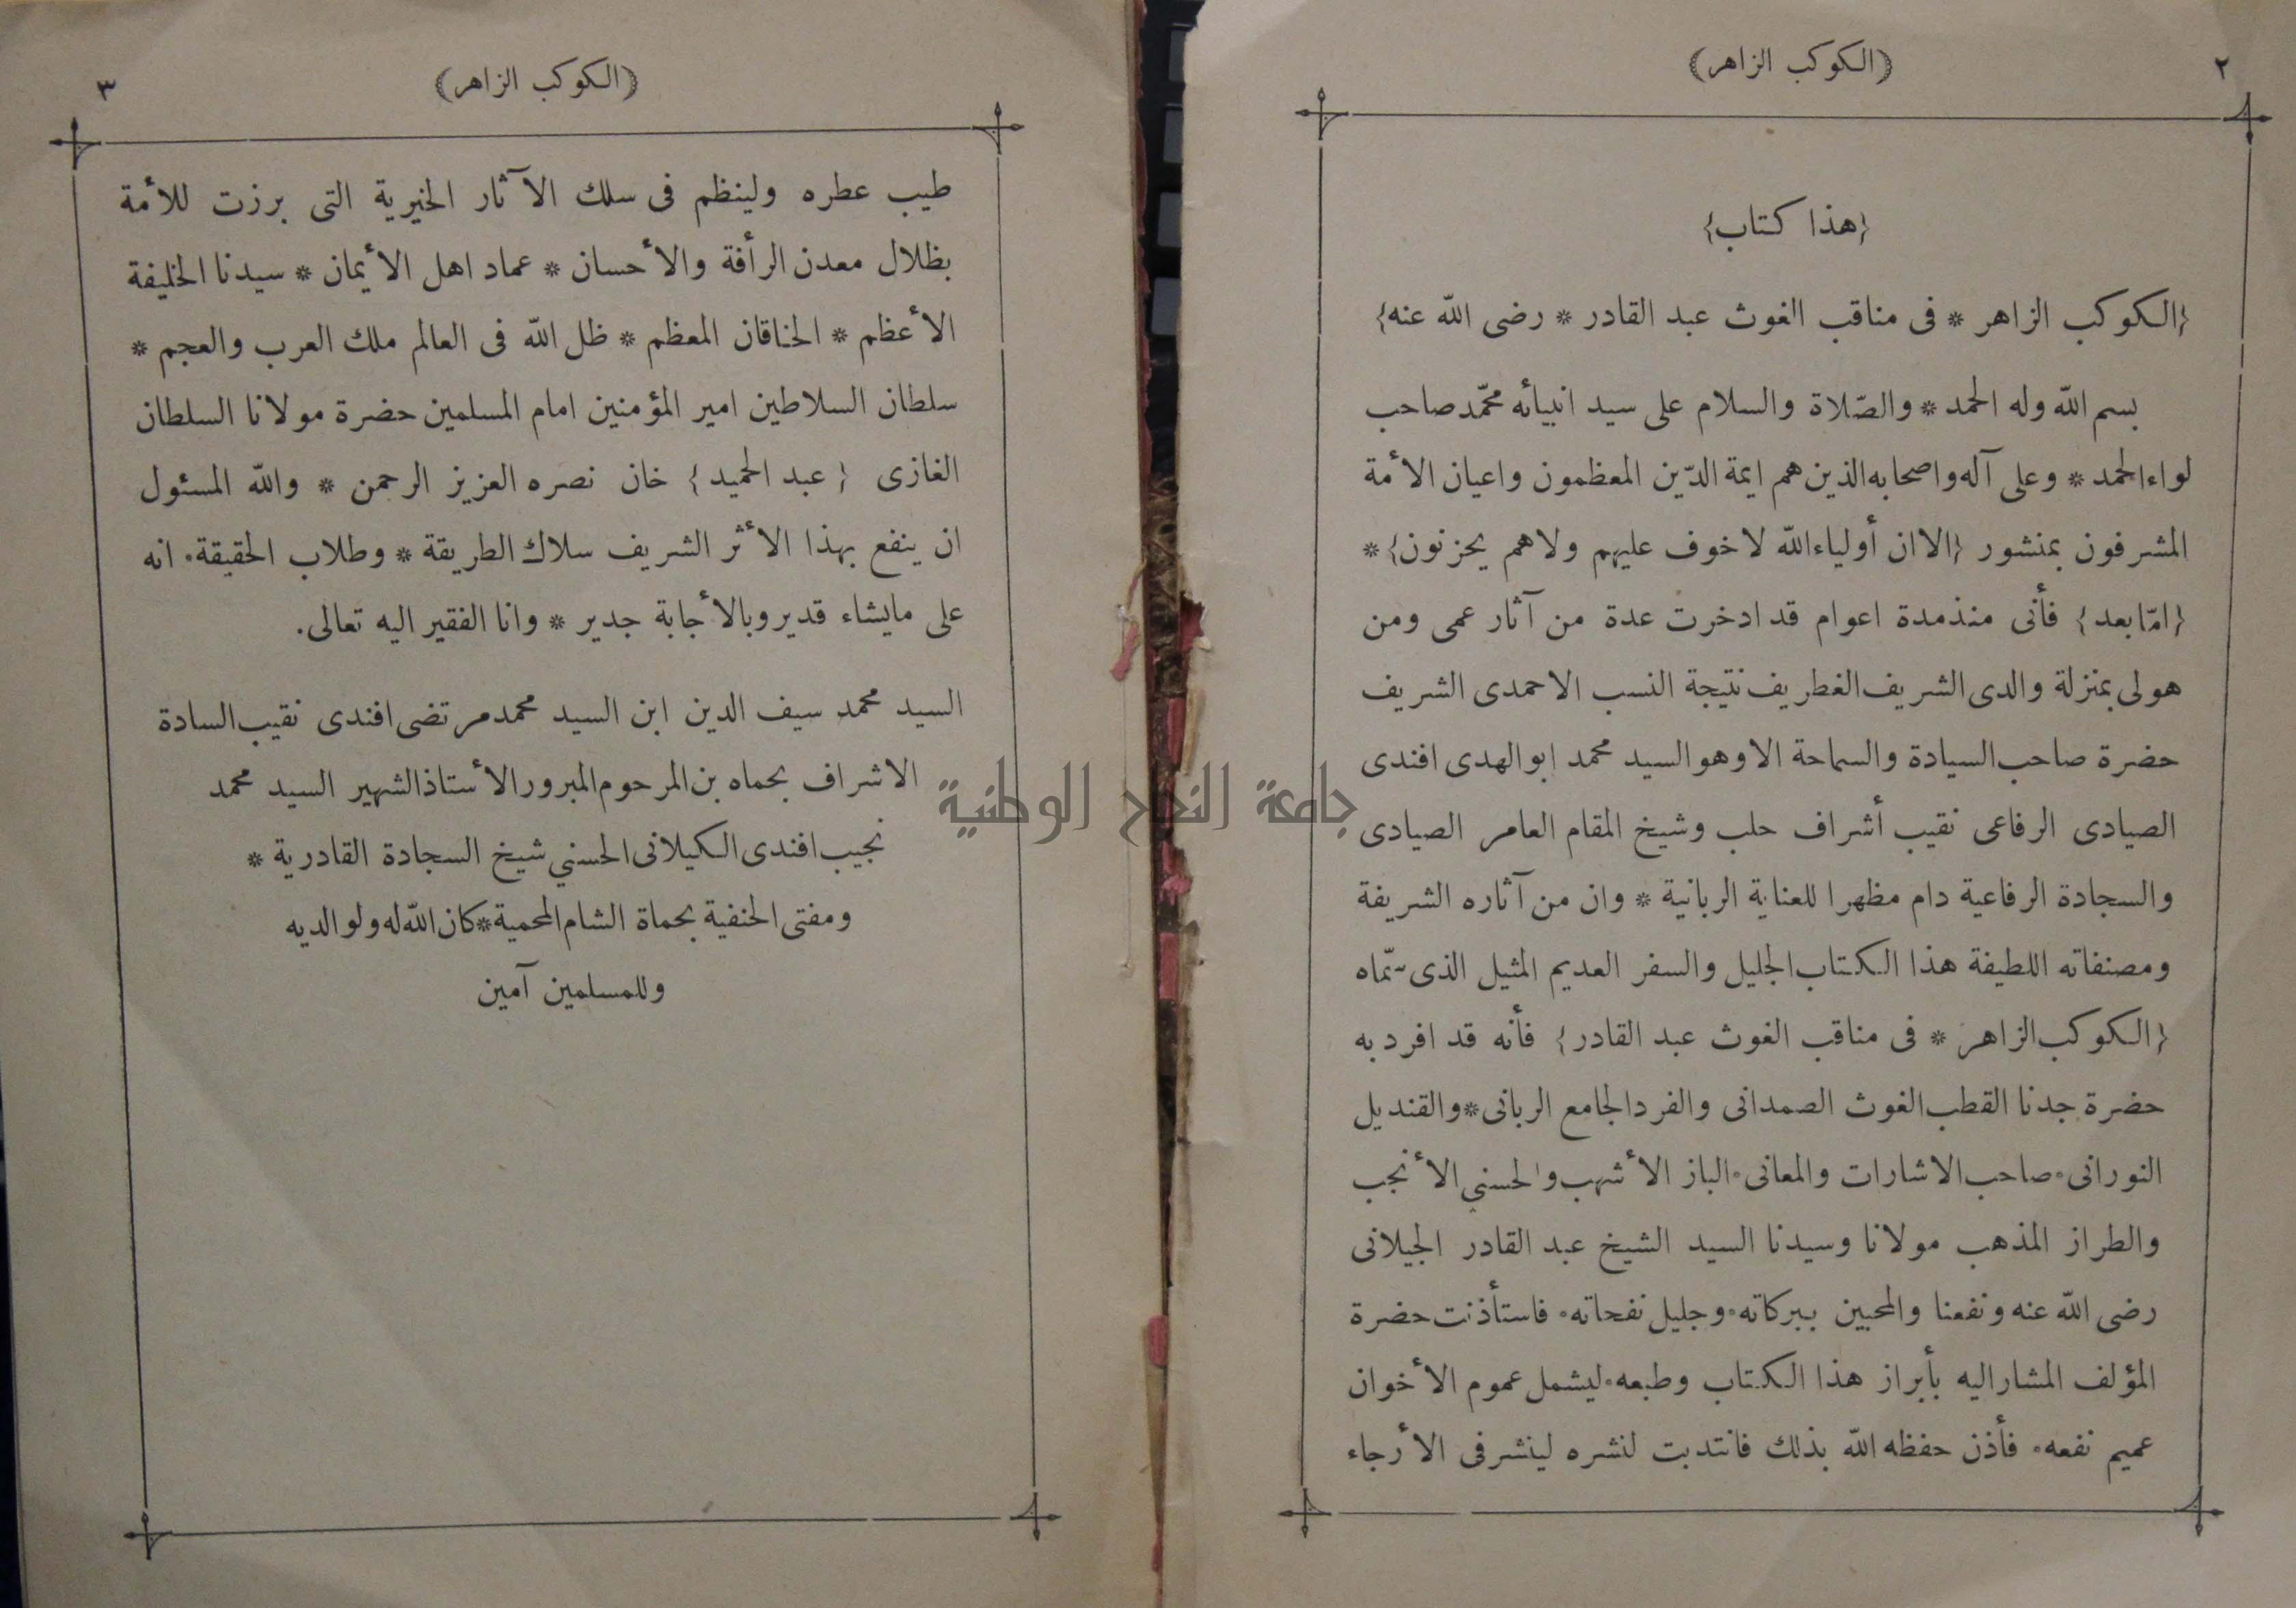 ٢
﴿الكوكب الزاهر﴾
﴿هذا كتاب﴾
﴿الكوكب الزاهر * فى مناقب الغوث عبد القادر * رضى الله عنه﴾
بسم الله وله الحمد * والصّلاة والسلام على سيد انبيائه محمّد صاحب
لواء الحمد * وعلى آله واصحابه الذين هم ايمة الدّين المعظمون واعيان الأمة
المشرفون بمنشور ﴿الا ان أولياء الله لا خوف عليهم ولاهم يحزنون﴾ *
﴿امّا بعد﴾ فأنى منذ مدة اعوام قد ادخرت عدة من آثار عمى ومن
هولى بمنزلة والدى الشريف الغطريف نتيجة النسب الاحمدى الشريف
حضرة صاحب السيادة والسماحة الا وهو السيد محمد ابو الهدى افندى
الصيادى الرفاعى نقيب أشراف حلب وشيخ المقام العامر الصيادى
والسجادة الرفاعية دام مظهرا للعناية الربانية * وان من آثاره الشريفة
ومصنفاته اللطيفة هذا الكتاب الجليل والسفر العديم المثيل الذى سمّاه
﴿الكوكب الزاهر * فى مناقب الغوث عبد القادر﴾ فأنه قد افرد به
حضرة جدنا القطب الغوث الصمدانى والفرد الجامع الربانى * والقنديل
النورانى ۰ صاحب الاشارات والمعانى ۰ الباز الأشهب والحسني الأنجب
والطراز المذهب مولانا وسيدنا السيد الشيخ عبد القادر الجيلانى
رضى الله عنه ونفعنا والمحبين ببركاته ۰ وجليل نفحاته ۰ فاستأذنت حضرة
المؤلف المشار اليه بأبراز هذا الكتاب وطبعه ۰ ليشمل عموم الأخوان
عميم نفعه ۰ فأذن حفظه الله بذلك فانتدبت لنشره لينشر فى الأرجاء
٣
﴿الكوكب الزاهر﴾
طيب عطره ولينظم فى سلك الآثار الخيرية التى برزت للأمة
بظلال معدن الرأفة والأحسان * عماد اهل الأيمان * سيدنا الخليفة
الأعظم * الخاقان المعظم * ظل الله فى العالم ملك العرب والعجم *
سلطان السلاطين امير المؤمنين امام المسلمين حضرة مولانا السلطان
الغازى ﴿عبد الحميد﴾ خان نصره العزيز الرحمن * والله المسئول
ان ينفع بهذا الأثر الشريف سلاك الطريقة * وطلاب الحقيقة ۰ انه
على مايشاء قدير وبالأجابة جدير * وانا الفقير اليه تعالى.
السيد محمد سيف الدين ابن السيد محمد مرتضى افندى نقيب السادة
الاشراف بحماه بن المرحوم المبرور الأستاذ الشهير السيد محمد
نجيب افندى الكيلانى الحسني شيخ السجادة القادرية *
ومفتى الحنفية بحماة الشام المحمية * كان الله له ولوالديه
وللمسلمين آمين
جامعة النجاح الوطنية